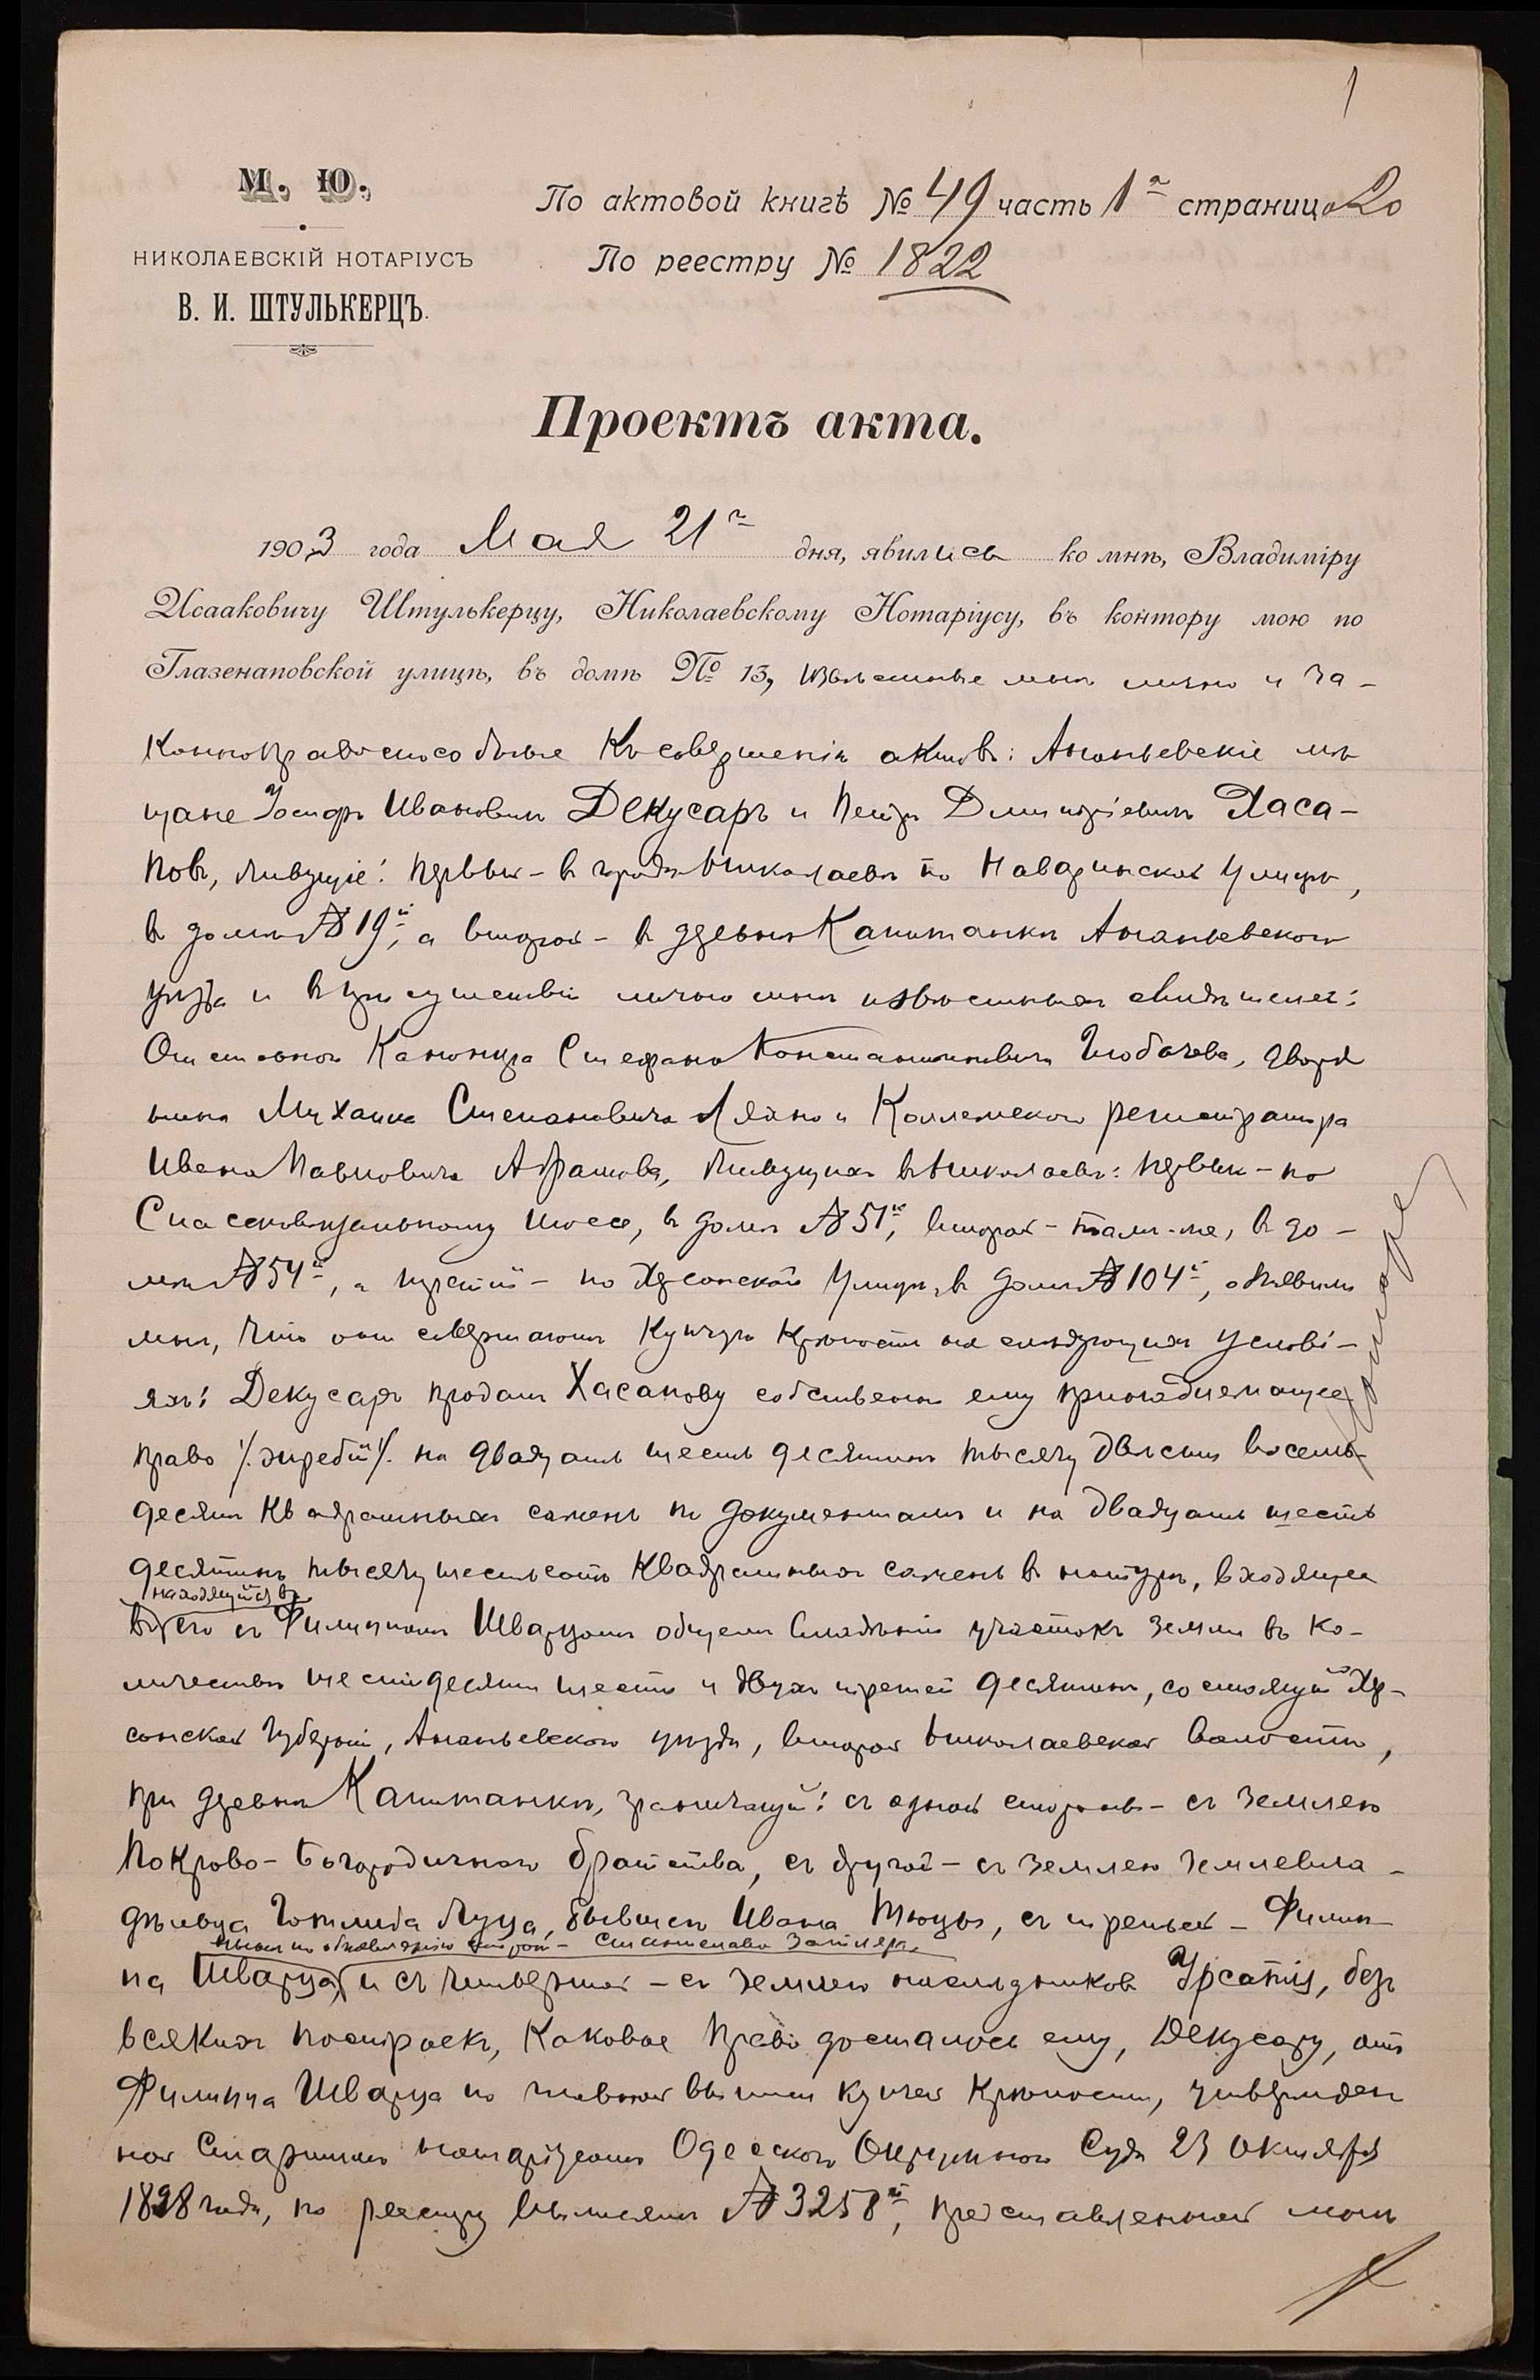 1
М. Ю.
НИКОЛАЕВСКІЙ НОТАРІУСЪ
В. И. ШТУЛЬКЕРЦЪ.
По актовой книгѣ № 49 часть 1я страница 20
По реестру № 1822
Проектъ акта.
1903 года Мая 21го дня, явились ко мнѣ, Владиміру
Исааковичу Штулькерцу, Николаевскому Нотаріусу, въ контору мою по
Глазенаповской улицѣ, въ домѣ № 13, извѣстные мнѣ лично и за-
конноправоспособные къ совершенію актовъ: Ананьевскіе мѣ
щане Іосифъ Ивановичъ Декусаръ и Петръ Димитріевичъ Хаса-
повъ, живущіе: первый - въ городѣ Николаевѣ по Наваринской улицѣ,
въ домѣ № 19й, а второй - въ деревнѣ Капитанкѣ Ананьевскаго
уѣзда и въ присутствіи лично мнѣ извѣстныхъ свидѣтелей:
Отставного Канонира Стефана Константиновича дворя
нина Михаила Степановича и Коллежскаго регистратора
Ивана Павловича Абрамова, живущихъ въ Николаевѣ: первый - по
шоссе, въ домѣ № 51й, второй - тамъ-же, въ до-
мѣ № 54й, а третій - по Херсонской улицѣ, въ домѣ № 104й, объявили
мнѣ, что они совершаютъ купчую крѣпость на слѣдующихъ услові-
яхъ: Декусаръ продалъ Хасапову собственно ему принадлежащее
право /жребій/ на двадцать шесть десятинъ тысячу двѣсти восемь-
десятъ квадратныхъ сажень по документамъ и на двадцать шесть
десятинъ тысячу шестьсотъ квадратныхъ сажень въ натурѣ, входящее
находящійся въ
его съ Филиппомъ Шварцомъ общемъ владѣніи участокъ земли въ ко-
личествѣ шестидесяти шести и двухъ третей десятинъ, состоящій Хер-
сонской губерніи, Ананьевскаго уѣзда, второй Николаевской волости,
при деревнѣ Капитанкѣ, граничащій: съ одной стороны - съ землею
Покрово-Богородичнаго братства, съ другой - съ землею землевла-
дѣльца Готлиба Луца, бывшею Ивана съ третьей - Филип-
нынѣ по объявленію сторонъ - Станислава
па Шварца, и съ четвертой - съ землею наслѣдниковъ Урсатій, безъ
всякихъ построекъ, каковое право досталось ему, Декусару, отъ
Филиппа Шварца по купчей крѣпости, утвержден
ной Старшимъ нотаріусомъ Одесскаго Окружного Суда 23 Октября
1898 года, по реестру № 3258й, представленной мнѣ